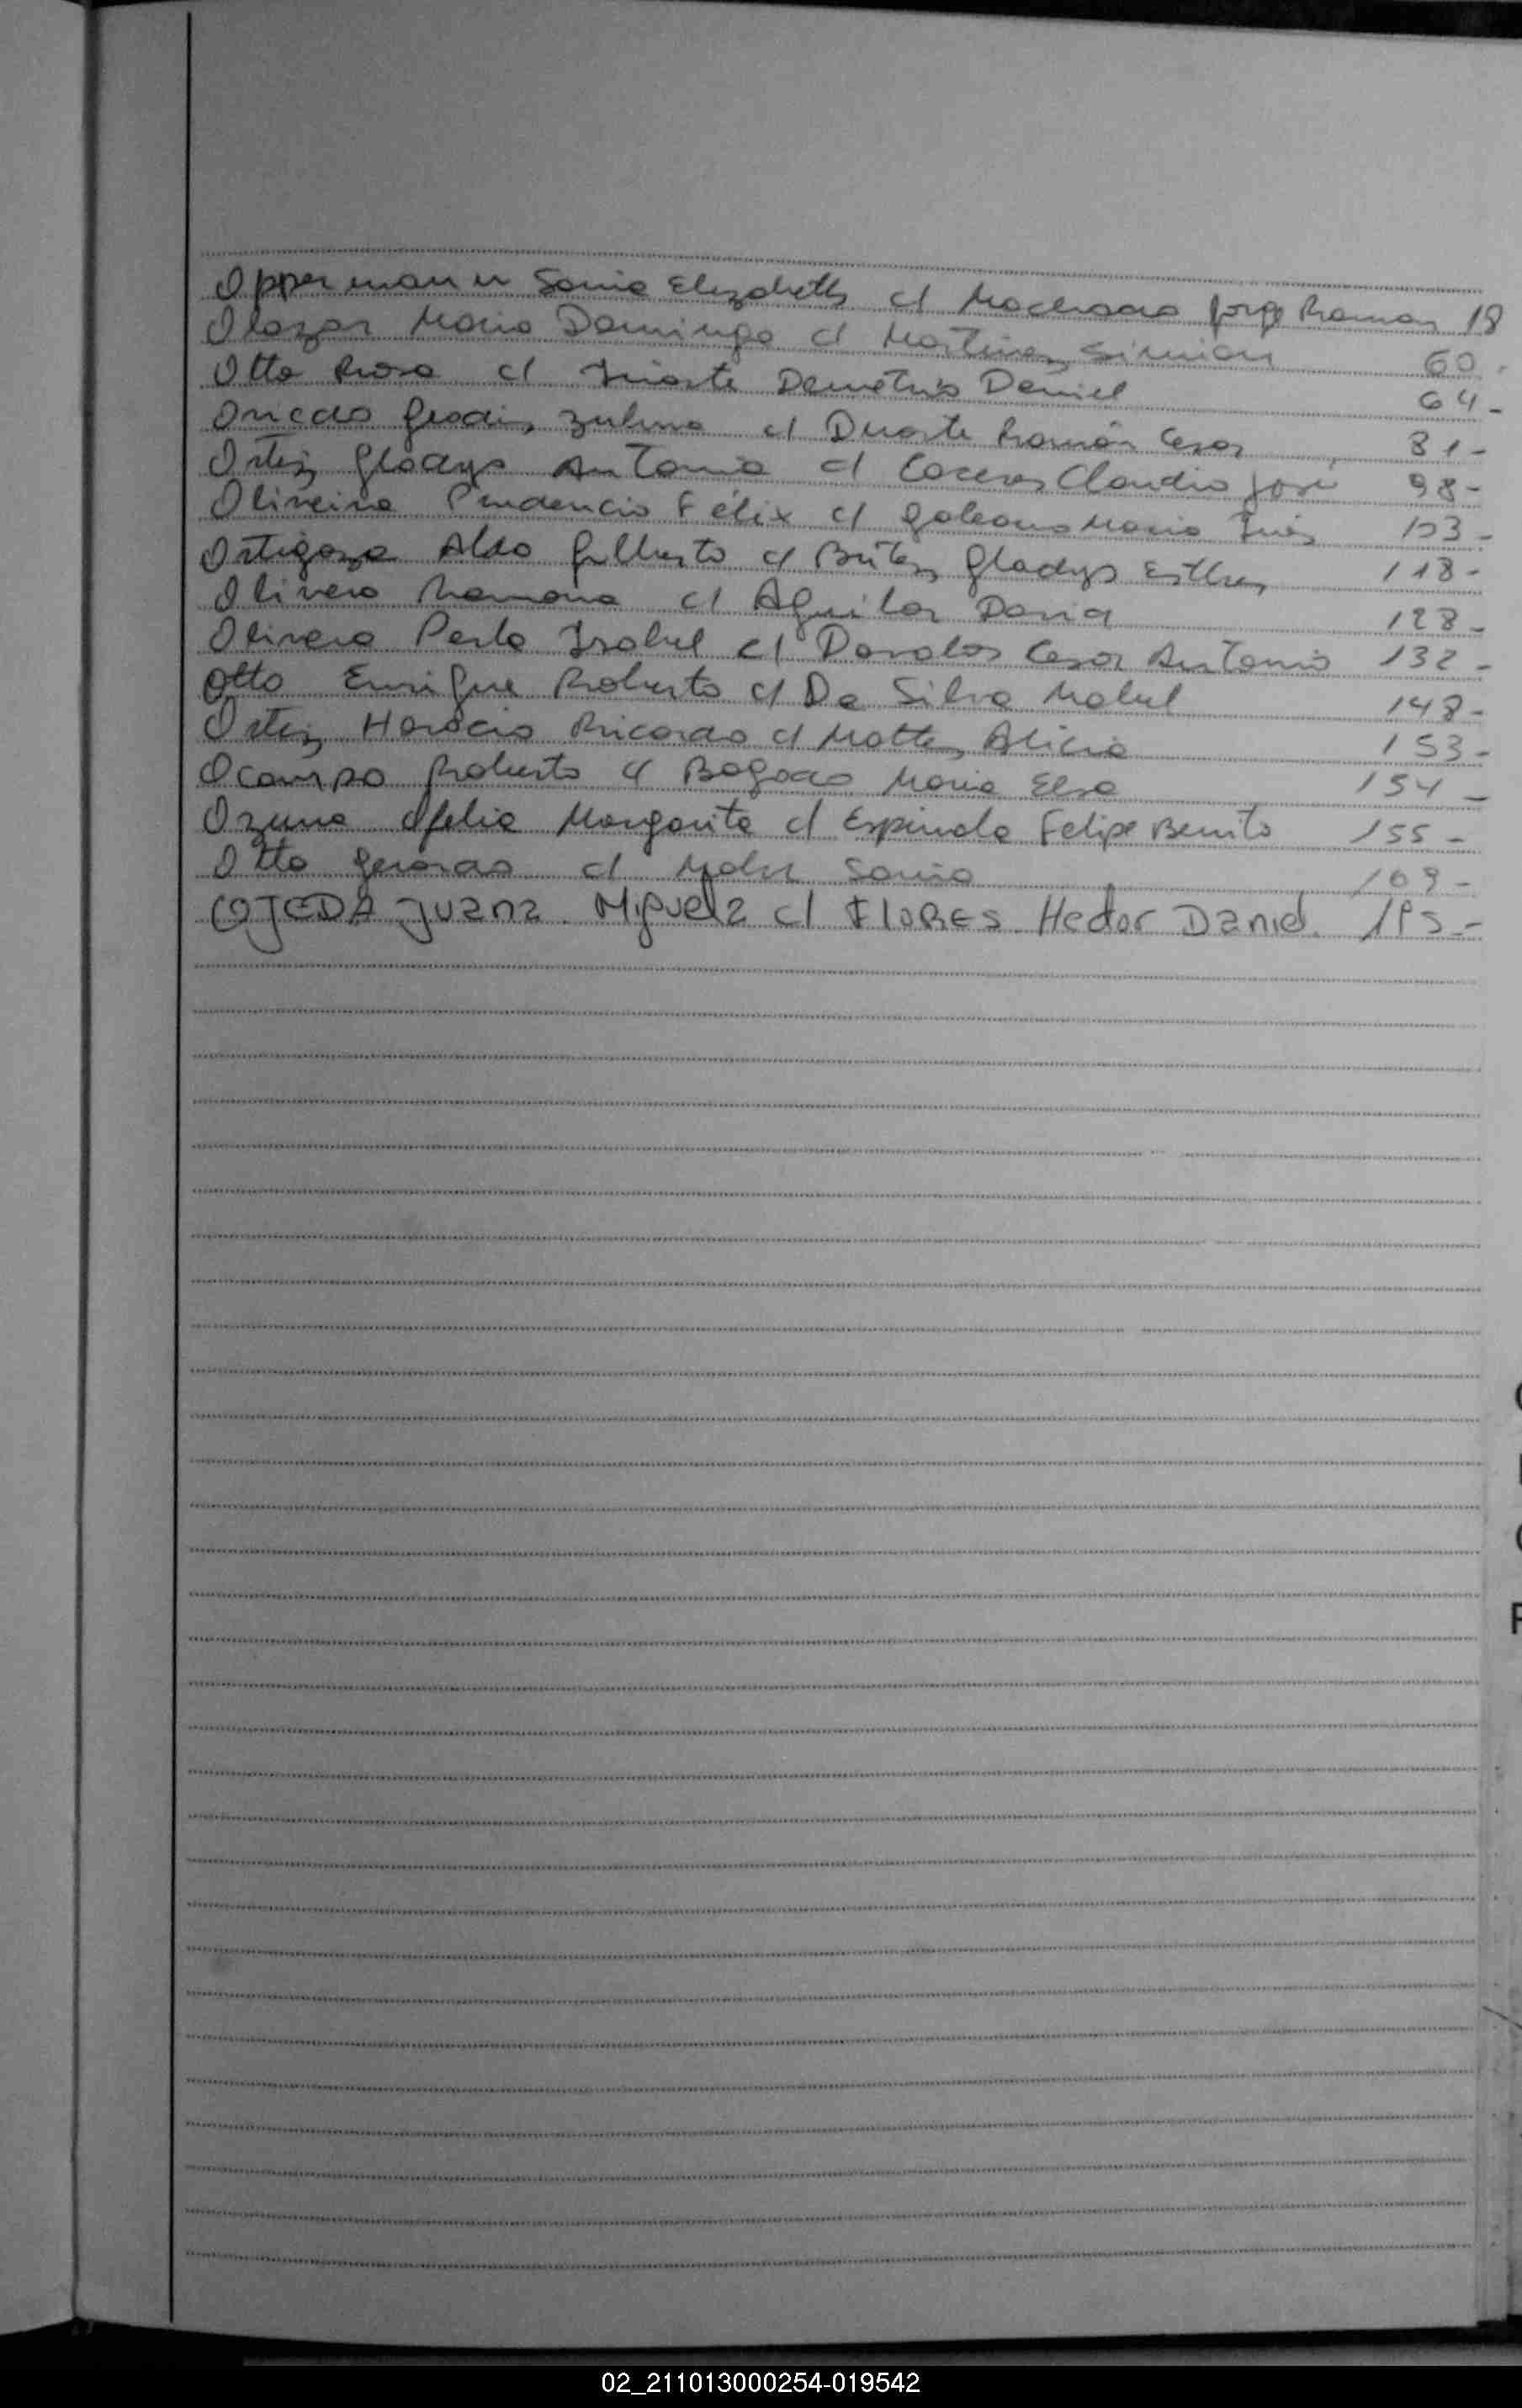 Oppermann Sonia Elizabeth c/ Machado Jorge Ramon 18
Olazar Mario Domingo c/ Martinez Simian 60-
Otto Rosa c/ Iriarte Demetrio Daniel 64-
Zulma c/ Duarte Ramón Cesar 81-
Ortiz Gladys Antonia c/ Caceres Claudio José 98-
Oliveira Prudencio Félix c/ Galeano Maria Inés 103-
Ortigoza Aldo Gilberto c/ Britez Gladys Esther 118-
Olivera Ramona c/ Aguilar Dario 128-
Olivera Perla Isabel c/ Davalos Cesar Antonio 132-
Otto Enrique Roberto c/ Da Silva Mabel 148-
Ortiz Horacio Ricardo c/ Motta Alicia 153-
Ocampo Roberto c/ Bogado Maria Elsa 154-
Ozuna Ofelia Margarita c/ Espindola Felipe Benito 155-
Otto Gerardo c/ Sonia 169-
OJEDA Juana Miguela c/ FLORES Hector Daniel. 195.-
02_211013000254-019542